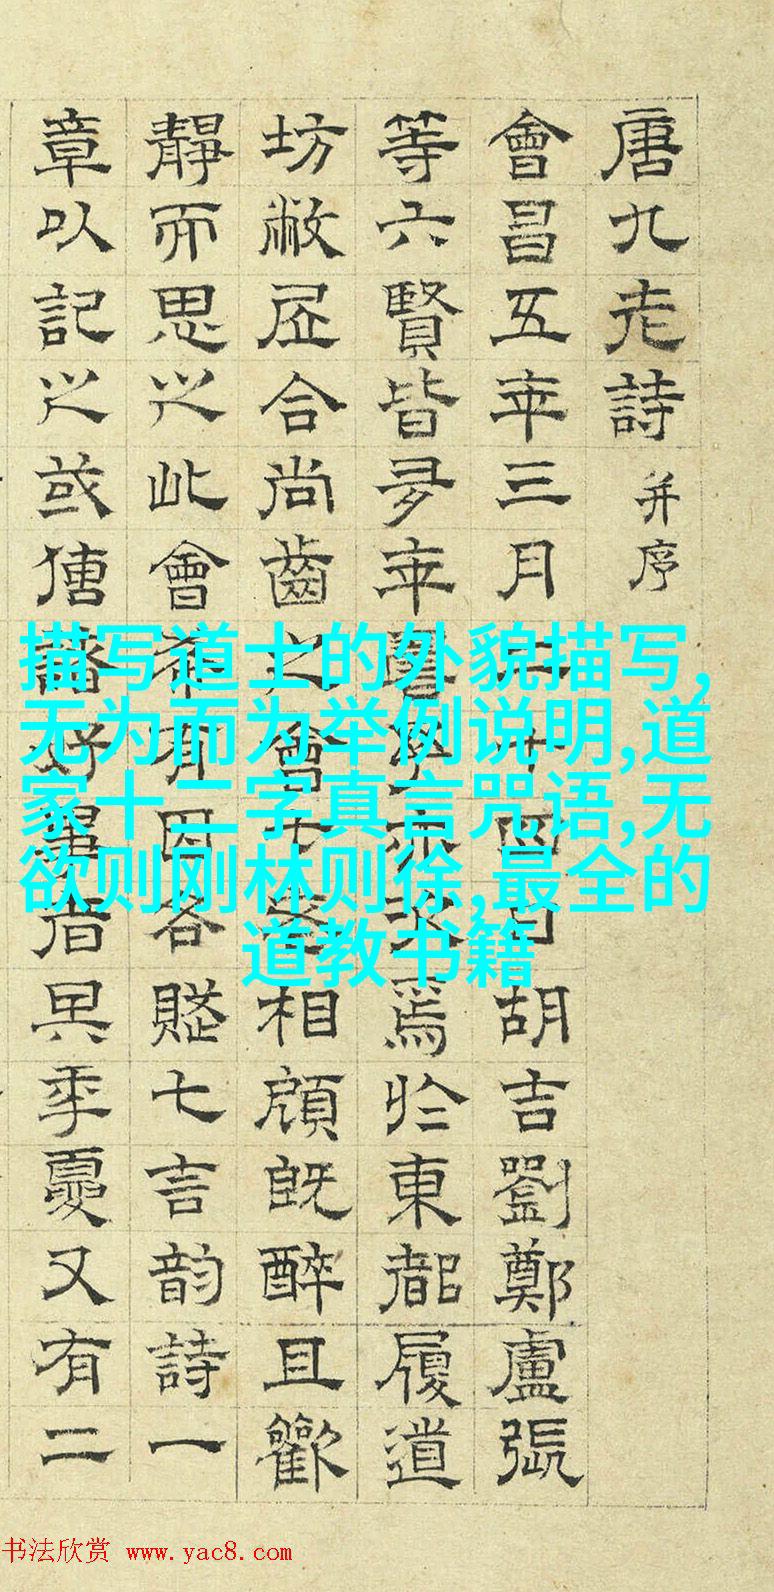 唐九老詩 并序
會昌五年三月二十四日胡吉劉鄭盧張
等六賢皆多年壽予亦次焉於東都履道
坊敝居合尚齒之會七老相顧既醉且歡
靜而思之此會希有因各賦七言韵詩一
章以記之或傳諸好事者其年夏又有二
描写道士的外貌描写,
无为而为举例说明,道
家十二字真言咒语,无
欲则刚林则徐,最全的
道教书籍
书法欣赏 www.yac8.com